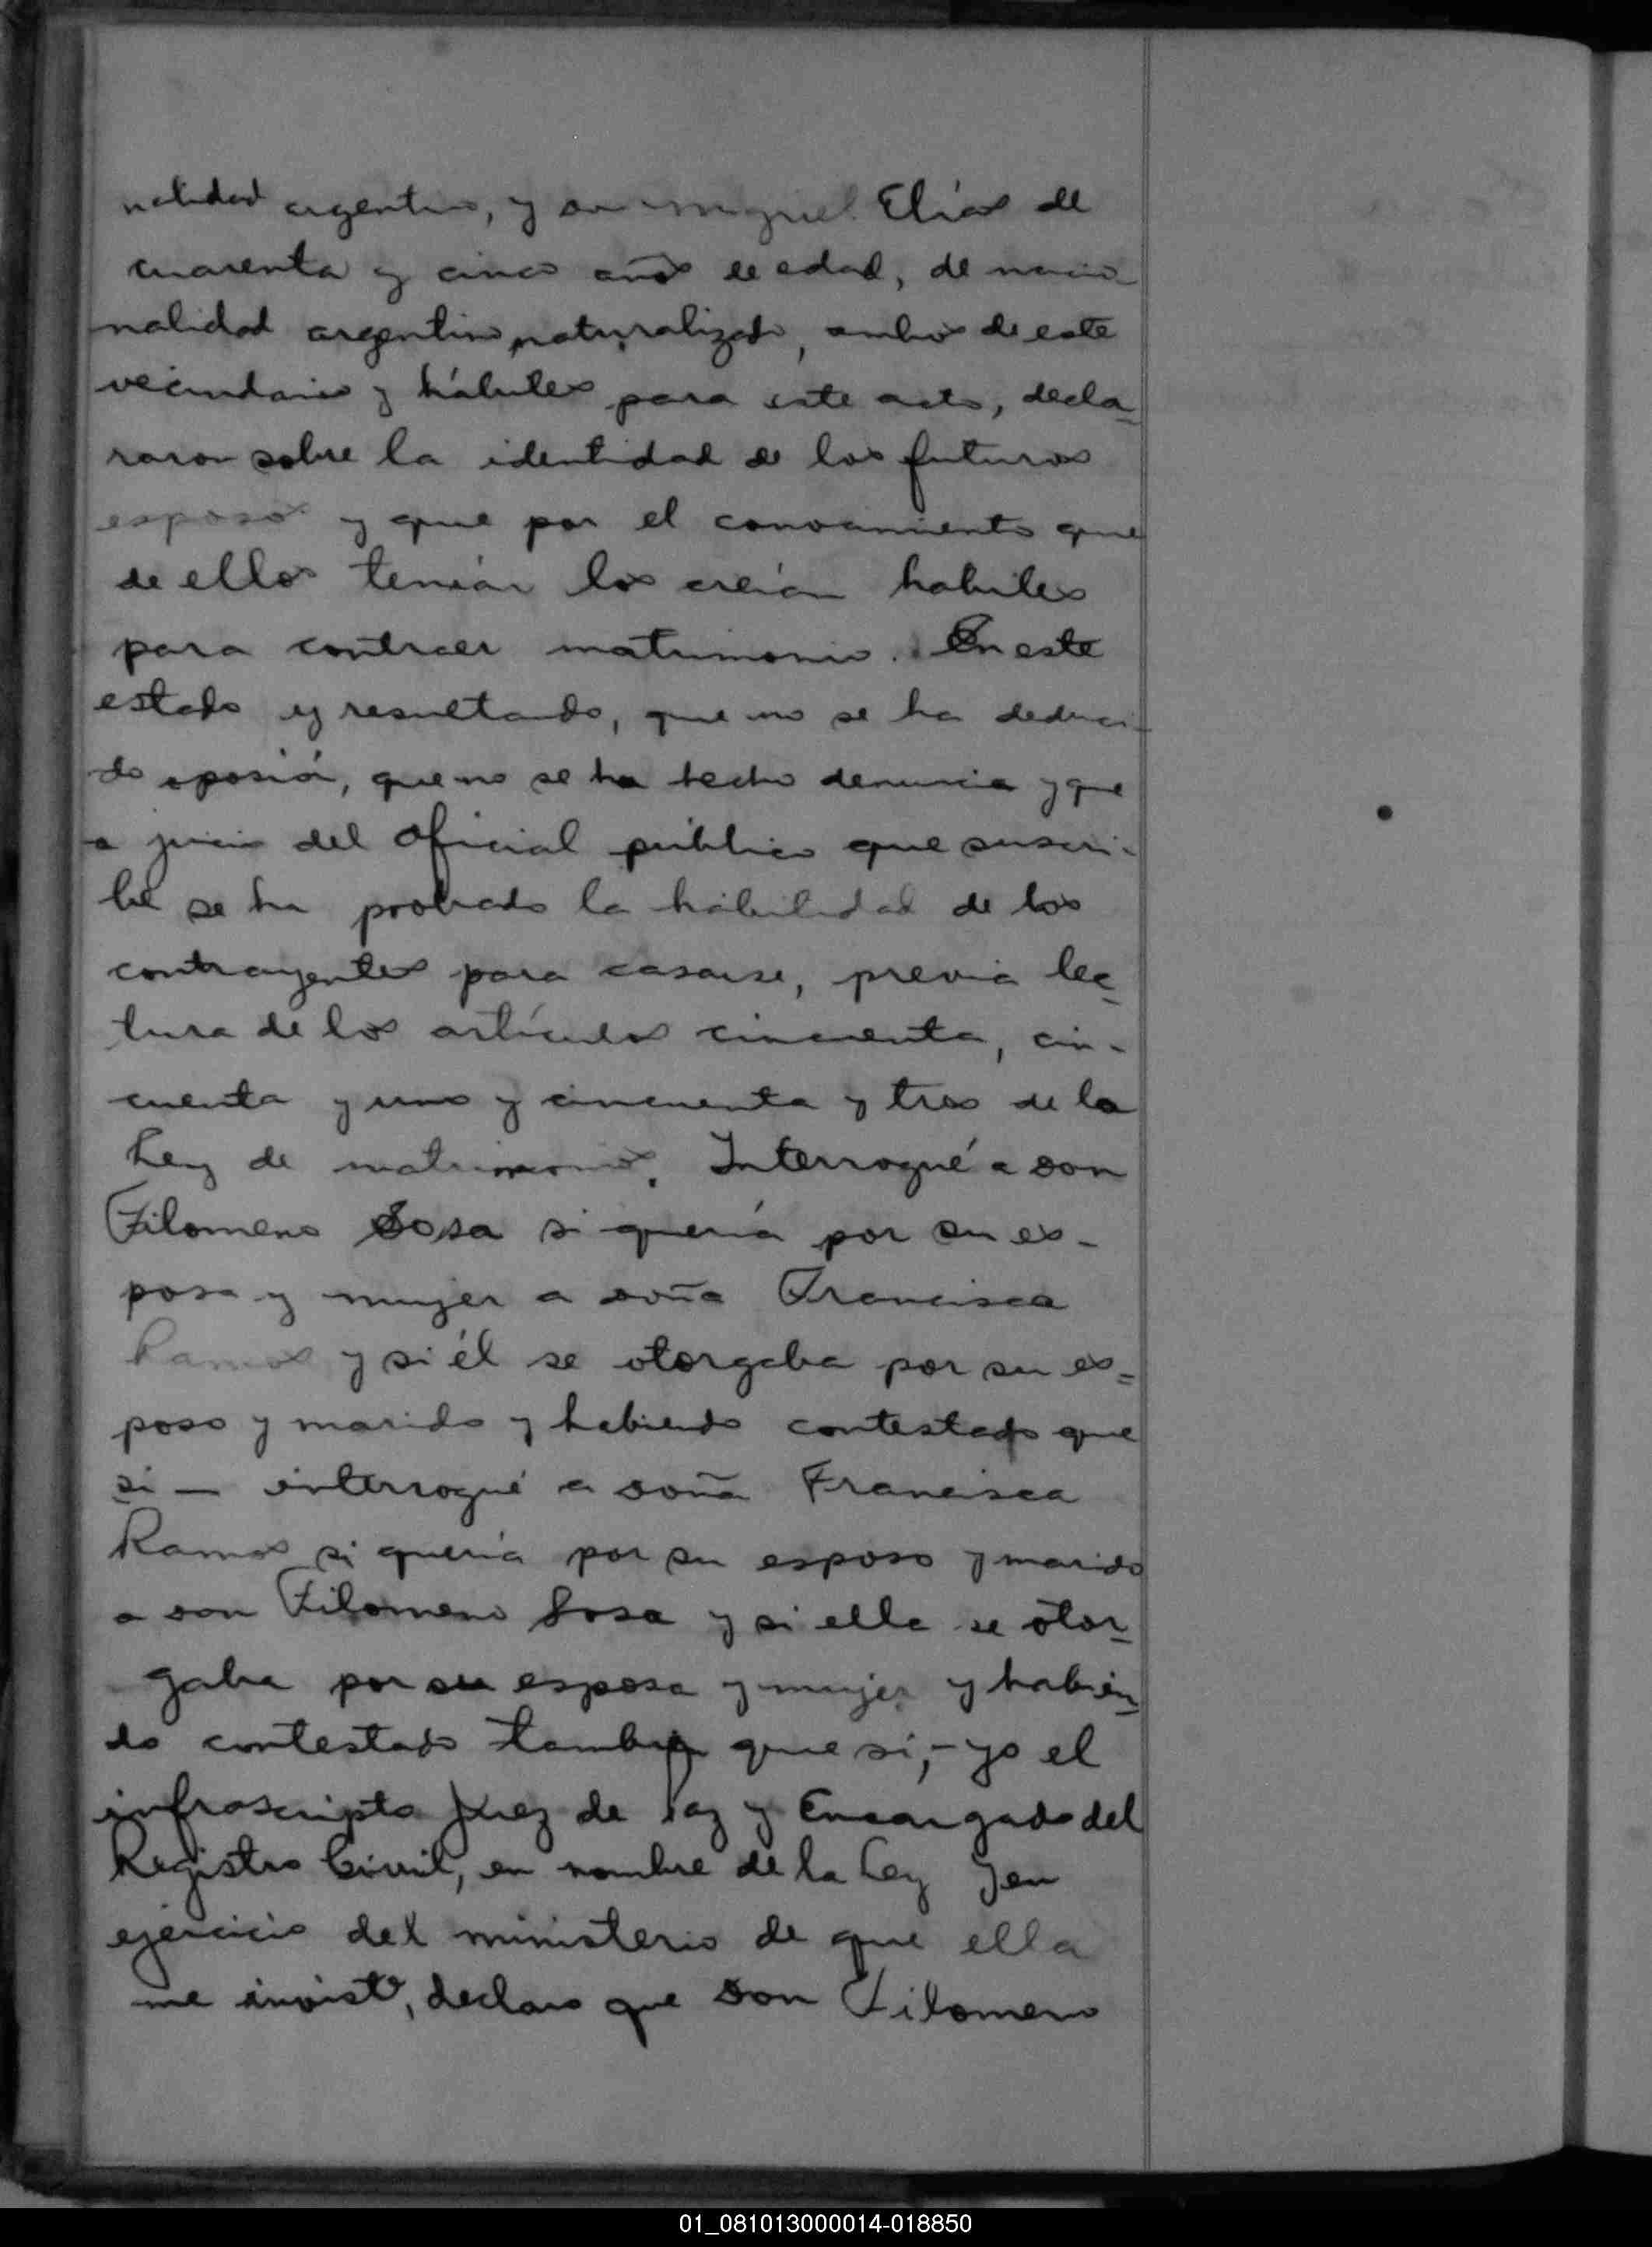 nalidad argentino, y don Miguel Elías de
cuarenta y cinco años de edad, de nacio
nalidad argentino naturalizado, ambos de este
vecindario y hábiles para este acto, decla-
raron sobre la identidad de los futuros
esposos y que por el conocimiento que
de ellos tenían los creían habiles
para contraer matrimonio. En este
estado y resultando, que no se ha deduci-
do oposión, que no se ha hecho denuncia y que
a juicio del oficial público que suscri-
be se ha probado la habilidad de los
contrayentes para casarse, previa lec-
tura de los artículos cincuenta, cin-
cuenta y uno y cincuenta y tres de la
Ley de matrimonio. Interrogué a don
Filomeno Sosa si quería por su es-
posa y mujer a doña Francisca
Ramos y si él se otorgaba por su es-
poso y marido y habiendo contestado que
si — interrogué a doña Francisca
Ramos si quería por su esposo y marido
a don Filomeno Sosa y si ella se otor-
gaba por su esposa y mujer y habien-
do contestado tambien que sí,- yo el
infrascripto Juez de Paz y Encargado del
Registro Civil, en nombre de la Ley y en
ejercicio del ministerio de que ella
me inviste, declaro que don Filomeno
01_081013000014-018850